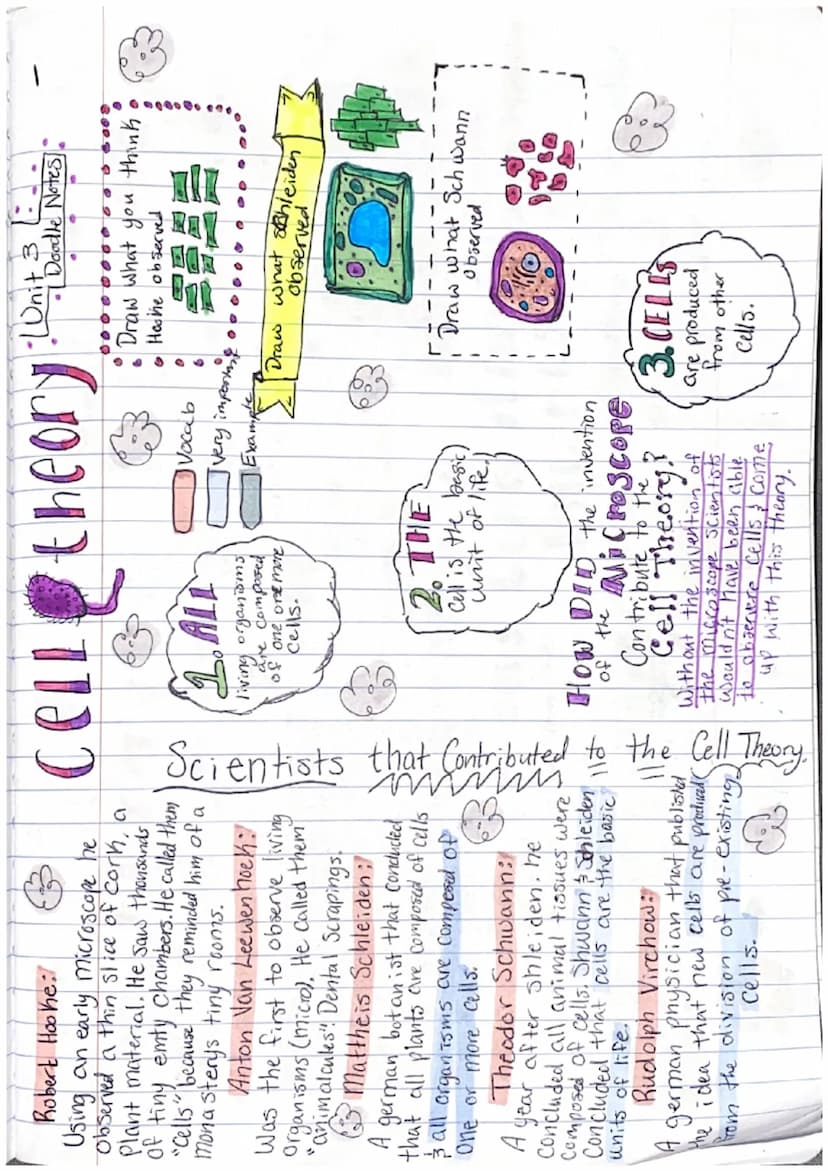 Cell theory
Unit 3
Doodle Notes
Robert Hooke:
Using an early microscope he
observed a thin slice of cork, a
plant material. He saw thousands
of tiny emty chambers. He called them
"cells" because they reminded him of a
monasterys tiny rooms.
Anton Van Leewenhoek:
Was the first to observe living
organisms (micro). He called them
"animalcules". Dental Scrapings.
Mattheis Schleiden:
A german botanist that conducted
that all plants are composed of cells
& all organisms are composed of
one or more cells.
Theodor Schwann:
A year after shleiden. he
concluded all animal tissues were
composed of cells. Shwann & Shleiden
concluded that cells are the basic
units of life.
Rudolph Virchow:
A german physician that published
the idea that new cells are produced
from the division of pre-existing
cells.
Scientists that Contributed to the Cell Theory.
1. ALL
living organisms
are composed
of one one more
cells.
Vocab
Very important
Example
2. THE
Cell is the basic
unit of life.
3. CELLS
are produced
from other
cells.
How DID the invention
of the MiCroSCOPE
Contribute to the
Cell Theory?
Without the invention of
the microscope scientists
wouldn't have been able
to observe cells & come
up with this theory.
Draw what you think
Hooke observed
Draw what schleiden
observed
Draw what Schwann
observed